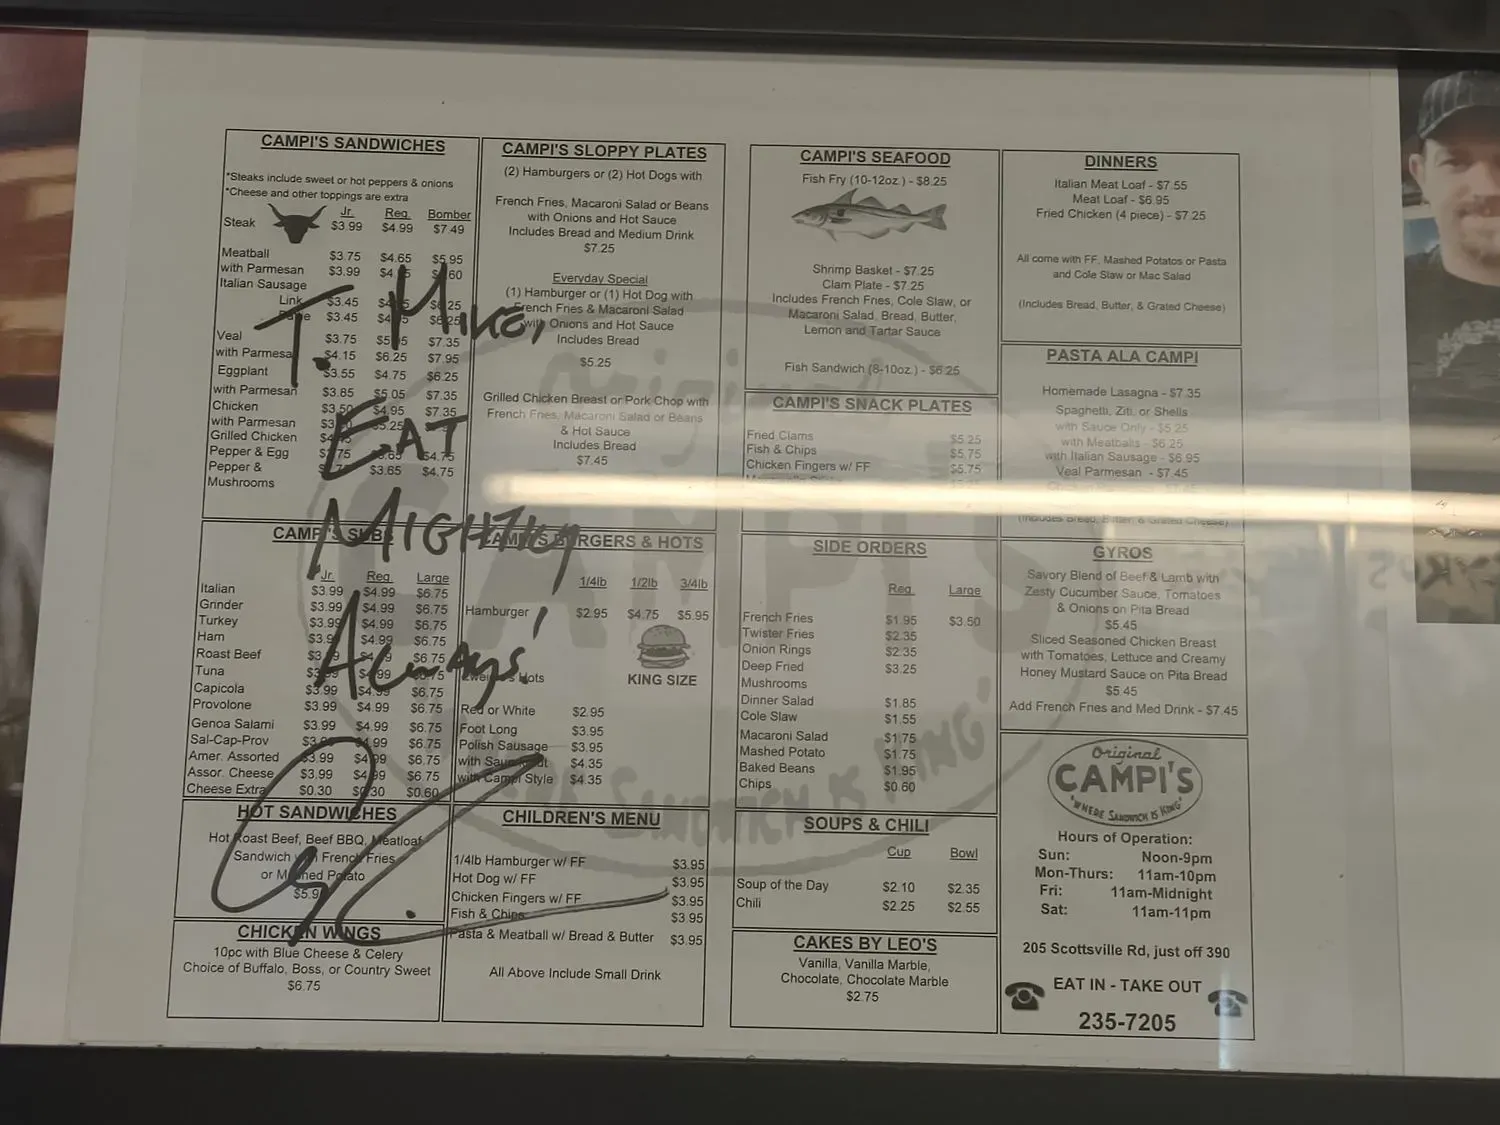 CAMPI'S SANDWICHES
*Steaks include sweet or hot peppers & onions
*Cheese and other toppings are extra
Jr. Reg. Bomber
Steak $3.99 $4.99 $7.49
Meatball $3.75 $4.65 $5.95
with Parmesan $3.99
Italian Sausage
Link $3.45
$3.45 $6.25
Veal $3.75 $7.35
with Parmesan $4.15 $6.25 $7.95
Eggplant $3.55 $4.75 $6.25
with Parmesan $3.85 $5.05 $7.35
Chicken $3.50 $4.95 $7.35
with Parmesan $5.25
Grilled Chicken
Pepper & Egg $4.75
Pepper & $3.65 $4.75
Mushrooms
T. Mike,
EAT
MIGHTILY
ALWAYS!
CAMPI'S SUBS
Jr. Reg. Large
Italian $3.99 $4.99 $6.75
Grinder $3.99 $4.99 $6.75
Turkey $3.99 $4.99 $6.75
Ham $3.99 $4.99 $6.75
Roast Beef $3.99 $4.99 $6.75
Tuna $3.99 $4.99 $6.75
Capicola $3.99 $4.99 $6.75
Provolone $3.99 $4.99 $6.75
Genoa Salami $3.99 $4.99 $6.75
Sal-Cap-Prov $3.99 $4.99 $6.75
Amer. Assorted $3.99 $4.99 $6.75
Assor. Cheese $3.99 $4.99 $6.75
Cheese Extra $0.30 $0.30 $0.60
HOT SANDWICHES
Hot Roast Beef, Beef BBQ, Meatloaf
Sandwich with French Fries
or Mashed Potato
CHICKEN WINGS
10pc with Blue Cheese & Celery
Choice of Buffalo, Boss, or Country Sweet
$6.75
CAMPI'S SLOPPY PLATES
(2) Hamburgers or (2) Hot Dogs with
French Fries, Macaroni Salad or Beans
with Onions and Hot Sauce
Includes Bread and Medium Drink
$7.25
Everyday Special
(1) Hamburger or (1) Hot Dog with
French Fries & Macaroni Salad
with Onions and Hot Sauce
Includes Bread
$5.25
Grilled Chicken Breast or Pork Chop with
French Fries, Macaroni Salad or Beans
& Hot Sauce
Includes Bread
$7.45
CAMPI'S BURGERS & HOTS
1/4lb 1/2lb 3/4lb
Hamburger $2.95 $4.75 $5.95
KING SIZE
Zweigle's Hots
Red or White $2.95
Foot Long $3.95
Polish Sausage $3.95
with Sauerkraut $4.35
with Campi Style $4.35
CHILDREN'S MENU
1/4lb Hamburger w/ FF $3.95
Hot Dog w/ FF $3.95
Chicken Fingers w/ FF $3.95
Fish & Chips $3.95
Pasta & Meatball w/ Bread & Butter $3.95
All Above Include Small Drink
CAMPI'S SEAFOOD
Fish Fry (10-12oz.) - $8.25
Shrimp Basket - $7.25
Clam Plate - $7.25
Includes French Fries, Cole Slaw, or
Macaroni Salad, Bread, Butter,
Lemon and Tartar Sauce
Fish Sandwich (8-10oz.) - $6.25
CAMPI'S SNACK PLATES
Fried Clams $5.25
Fish & Chips $5.75
Chicken Fingers w/ FF $5.75
SIDE ORDERS
Reg. Large
French Fries $1.95 $3.50
Twister Fries $2.35
Onion Rings $2.35
Deep Fried $3.25
Mushrooms
Dinner Salad $1.85
Cole Slaw $1.55
Macaroni Salad $1.75
Mashed Potato $1.75
Baked Beans $1.95
Chips $0.60
SOUPS & CHILI
Cup Bowl
Soup of the Day $2.10 $2.35
Chili $2.25 $2.55
CAKES BY LEO'S
Vanilla, Vanilla Marble,
Chocolate, Chocolate Marble
$2.75
DINNERS
Italian Meat Loaf - $7.55
Meat Loaf - $6.95
Fried Chicken (4 piece) - $7.25
All come with FF, Mashed Potatos or Pasta
and Cole Slaw or Mac Salad
(Includes Bread, Butter, & Grated Cheese)
PASTA ALA CAMPI
Homemade Lasagna - $7.35
Spaghetti, Ziti, or Shells
with Sauce Only - $5.25
with Meatballs - $6.25
with Italian Sausage - $6.95
Veal Parmesan - $7.45
(Includes Bread, Butter, & Grated Cheese)
GYROS
Savory Blend of Beef & Lamb with
Zesty Cucumber Sauce, Tomatoes
& Onions on Pita Bread
$5.45
Sliced Seasoned Chicken Breast
with Tomatoes, Lettuce and Creamy
Honey Mustard Sauce on Pita Bread
$5.45
Add French Fries and Med Drink - $7.45
Original
CAMPI'S
"WHERE SANDWICH IS KING"
Hours of Operation:
Sun: Noon-9pm
Mon-Thurs: 11am-10pm
Fri: 11am-Midnight
Sat: 11am-11pm
205 Scottsville Rd, just off 390
EAT IN - TAKE OUT
235-7205
Original
CAMPI'S
SANDWICH IS KING